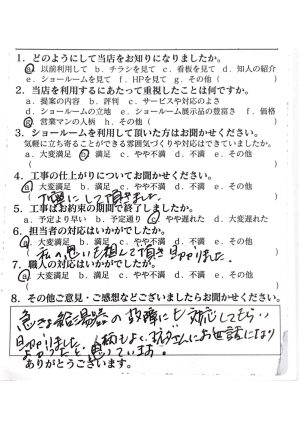 1．どのようにして当店をお知りになりましたか。
a．以前利用して b．チラシを見て c．看板を見て d．知人の紹介
e．ショールームを見て f．HPを見て g．その他（　　　）
2．当店を利用するにあたって重視したことは何ですか。
a．提案の内容 b．評判 c．サービスや対応のよさ
d．ショールームの立地 e．ショールーム展示品の豊富さ f．価格
g．営業マンの人柄 h．その他（　　　）
3．ショールームを利用して頂いた方はお聞かせください。
気軽に立ち寄ることができる雰囲気づくりや対応はできていましたか。
a．大変満足 b．満足 c．やや不満 d．不満 e．その他
（　　　）
4．工事の仕上がりについてお聞かせください。
a．大変満足 b．満足 c．やや不満 d．不満 e．その他
（丁寧にして頂きました。）
5．工事はお約束の期間で終了しましたか。
a．予定より早い b．予定通り c．やや遅れた d．大変遅れた
6．担当者の対応はいかがでしたか。
a．大変満足 b．満足 c．やや不満 d．不満 e．その他
（私の思いも組んで頂き助かりました。）
7．職人の対応はいかがでしたか。
a．大変満足 b．満足 c．やや不満 d．不満 e．その他
（　　　）
8．その他ご意見・ご感想などございましたらお聞かせください。
急きょ給湯器の故障にも対応してもらい
助かりました。人柄もよく さんにお世話になり
よかったと思っています。
ありがとうございます。